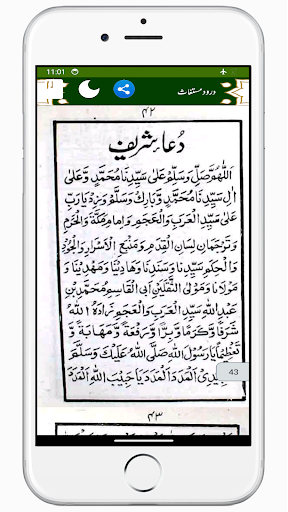 11:01
درود مستغاث
۴۲
دُعا شریف
اَللّٰهُمَّ صَلِّ وَسَلِّمْ عَلٰی سَیِّدِنَا مُحَمَّدٍ وَّعَلٰی
اٰلِ سَیِّدِنَا مُحَمَّدٍ وَّبَارِكْ وَسَلِّمْ وَزِدْ یَارَبِّ
عَلٰی سَیِّدِ الْعَرَبِ وَالْعَجَمِ وَاِمَامِ مَكَّةَ وَالْحَرَمِ
وَتَرْجُمَانِ لِسَانِ الْقِدَمِ وَمَنْبَعِ الْاَسْرَارِ وَالْجُوْدِ
وَالْحِكَمِ سَیِّدِنَا وَسَنَدِنَا وَهَادِیْنَا وَمَهْدِیْنَا وَ
مَوْلَانَا وَمَوْلَی الثَّقَلَیْنِ اَبِی الْقَاسِمِ مُحَمَّدِ بْنِ
عَبْدِ اللّٰهِ سَیِّدِ الْعَرَبِ وَالْعَجَمِ زَادَهُ اللّٰهُ
شَرَفًا وَّكَرَمًا وَّبِرًّا وَّرِفْعَةً وَّمَهَابَةً وَّ
تَعْظِیْمًا یَارَسُوْلَ اللّٰهِ صَلَّی اللّٰهُ عَلَیْكَ وَسَلَّمَ
43
سَیِّدِیْ اَلْمَدَدْ اَلْمَدَدْ یَا حَبِیْبَ اللّٰهِ اَلْمَدَدْ
۴۳